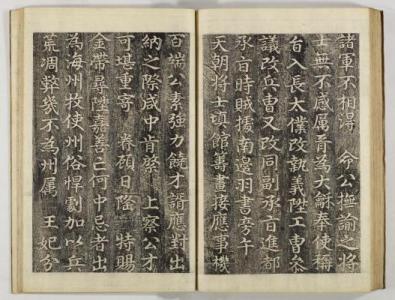 諸軍不相得 命公撫諭之將
士無不感厲胥為大龢奉使稱
旨入長太僕改執義陞工曹參
議改兵曹又改同副承旨進都
承旨時賊據南邊羽書旁午
天朝將士填館籌畫接應事機
百端公素強力饒才諝應對出
納之際咸中肯綮 上察公才
可堪重寄 眷顧日隆 特賜
金帶尋陞嘉善亡何中忌者出
為海州牧使州俗悍劇加以兵
荒凋弊幾不為州属 王妃分